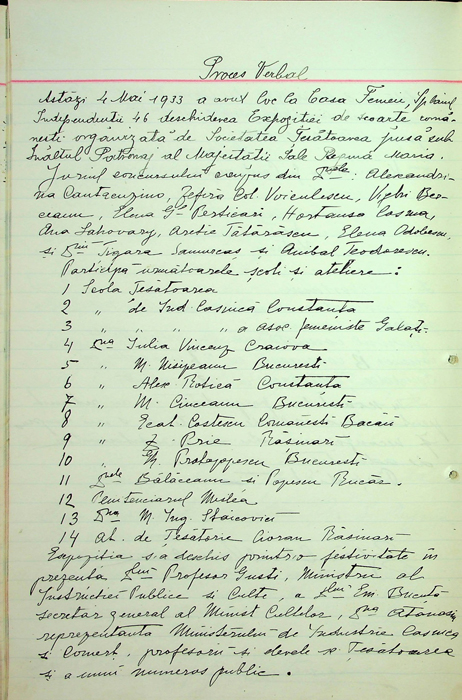 Proces Verbal
Astăzi 4 Mai 1933 a avut loc la Casa Femeii, Splaiul
Independentii 46 deschiderea Expozitiei de scoarte româ-
nesti organizată de Societatea Tesătoarea pusă sub
Înaltul Patronaj al Majestatii Sale Regina Maria.
Juriul concursului compus din Dnele: Alexandri-
na Cantacuzino, Zefira Col. Voiculescu,
Elena G-l Perticari, Hortansa Cosma,
Ana Lahovary, Aretie Tătărăscu, Elena Odobescu,
si Dnii Tigara Samurcas și Anibal Teodorescu.
Participă următoarele școli și ateliere:
1 Scola Tesătoarea
2 " de Ind. Casnică Constanta
3 " " " " a asoc. feministe Galați-
4 Dna Iulia Vincenz Craiova
5 " M. Nisipeanu Bucuresti
6 " Alex. Constanta
7 " M. Cinceanu Bucuresti
8 " Ecat. Costescu Comănesti Bacău
9 " Z. Prie Răsinari
10 " Protopopescu Bucuresti
11 Dnele Bălăceanu si Popescu Rucăr.
12 Penitenciarul Mislea
13 Dna M. Ing. Staicovici
14 At. de Tesătorie Cioran Răsinari
Expozitia s-a deschis printr-o festivitate în
prezenta Dlui Profesor Gusti, Ministru al
Instructiei Publice si Culte, a Dlui Em. Bucuta
secretar general al Minist. Cultelor, Dna Atanasiu
reprezentanta Ministerului de Industrie Casnica
si Comert. profesorii si elevele Tesătoarea
si a unui numeros public.